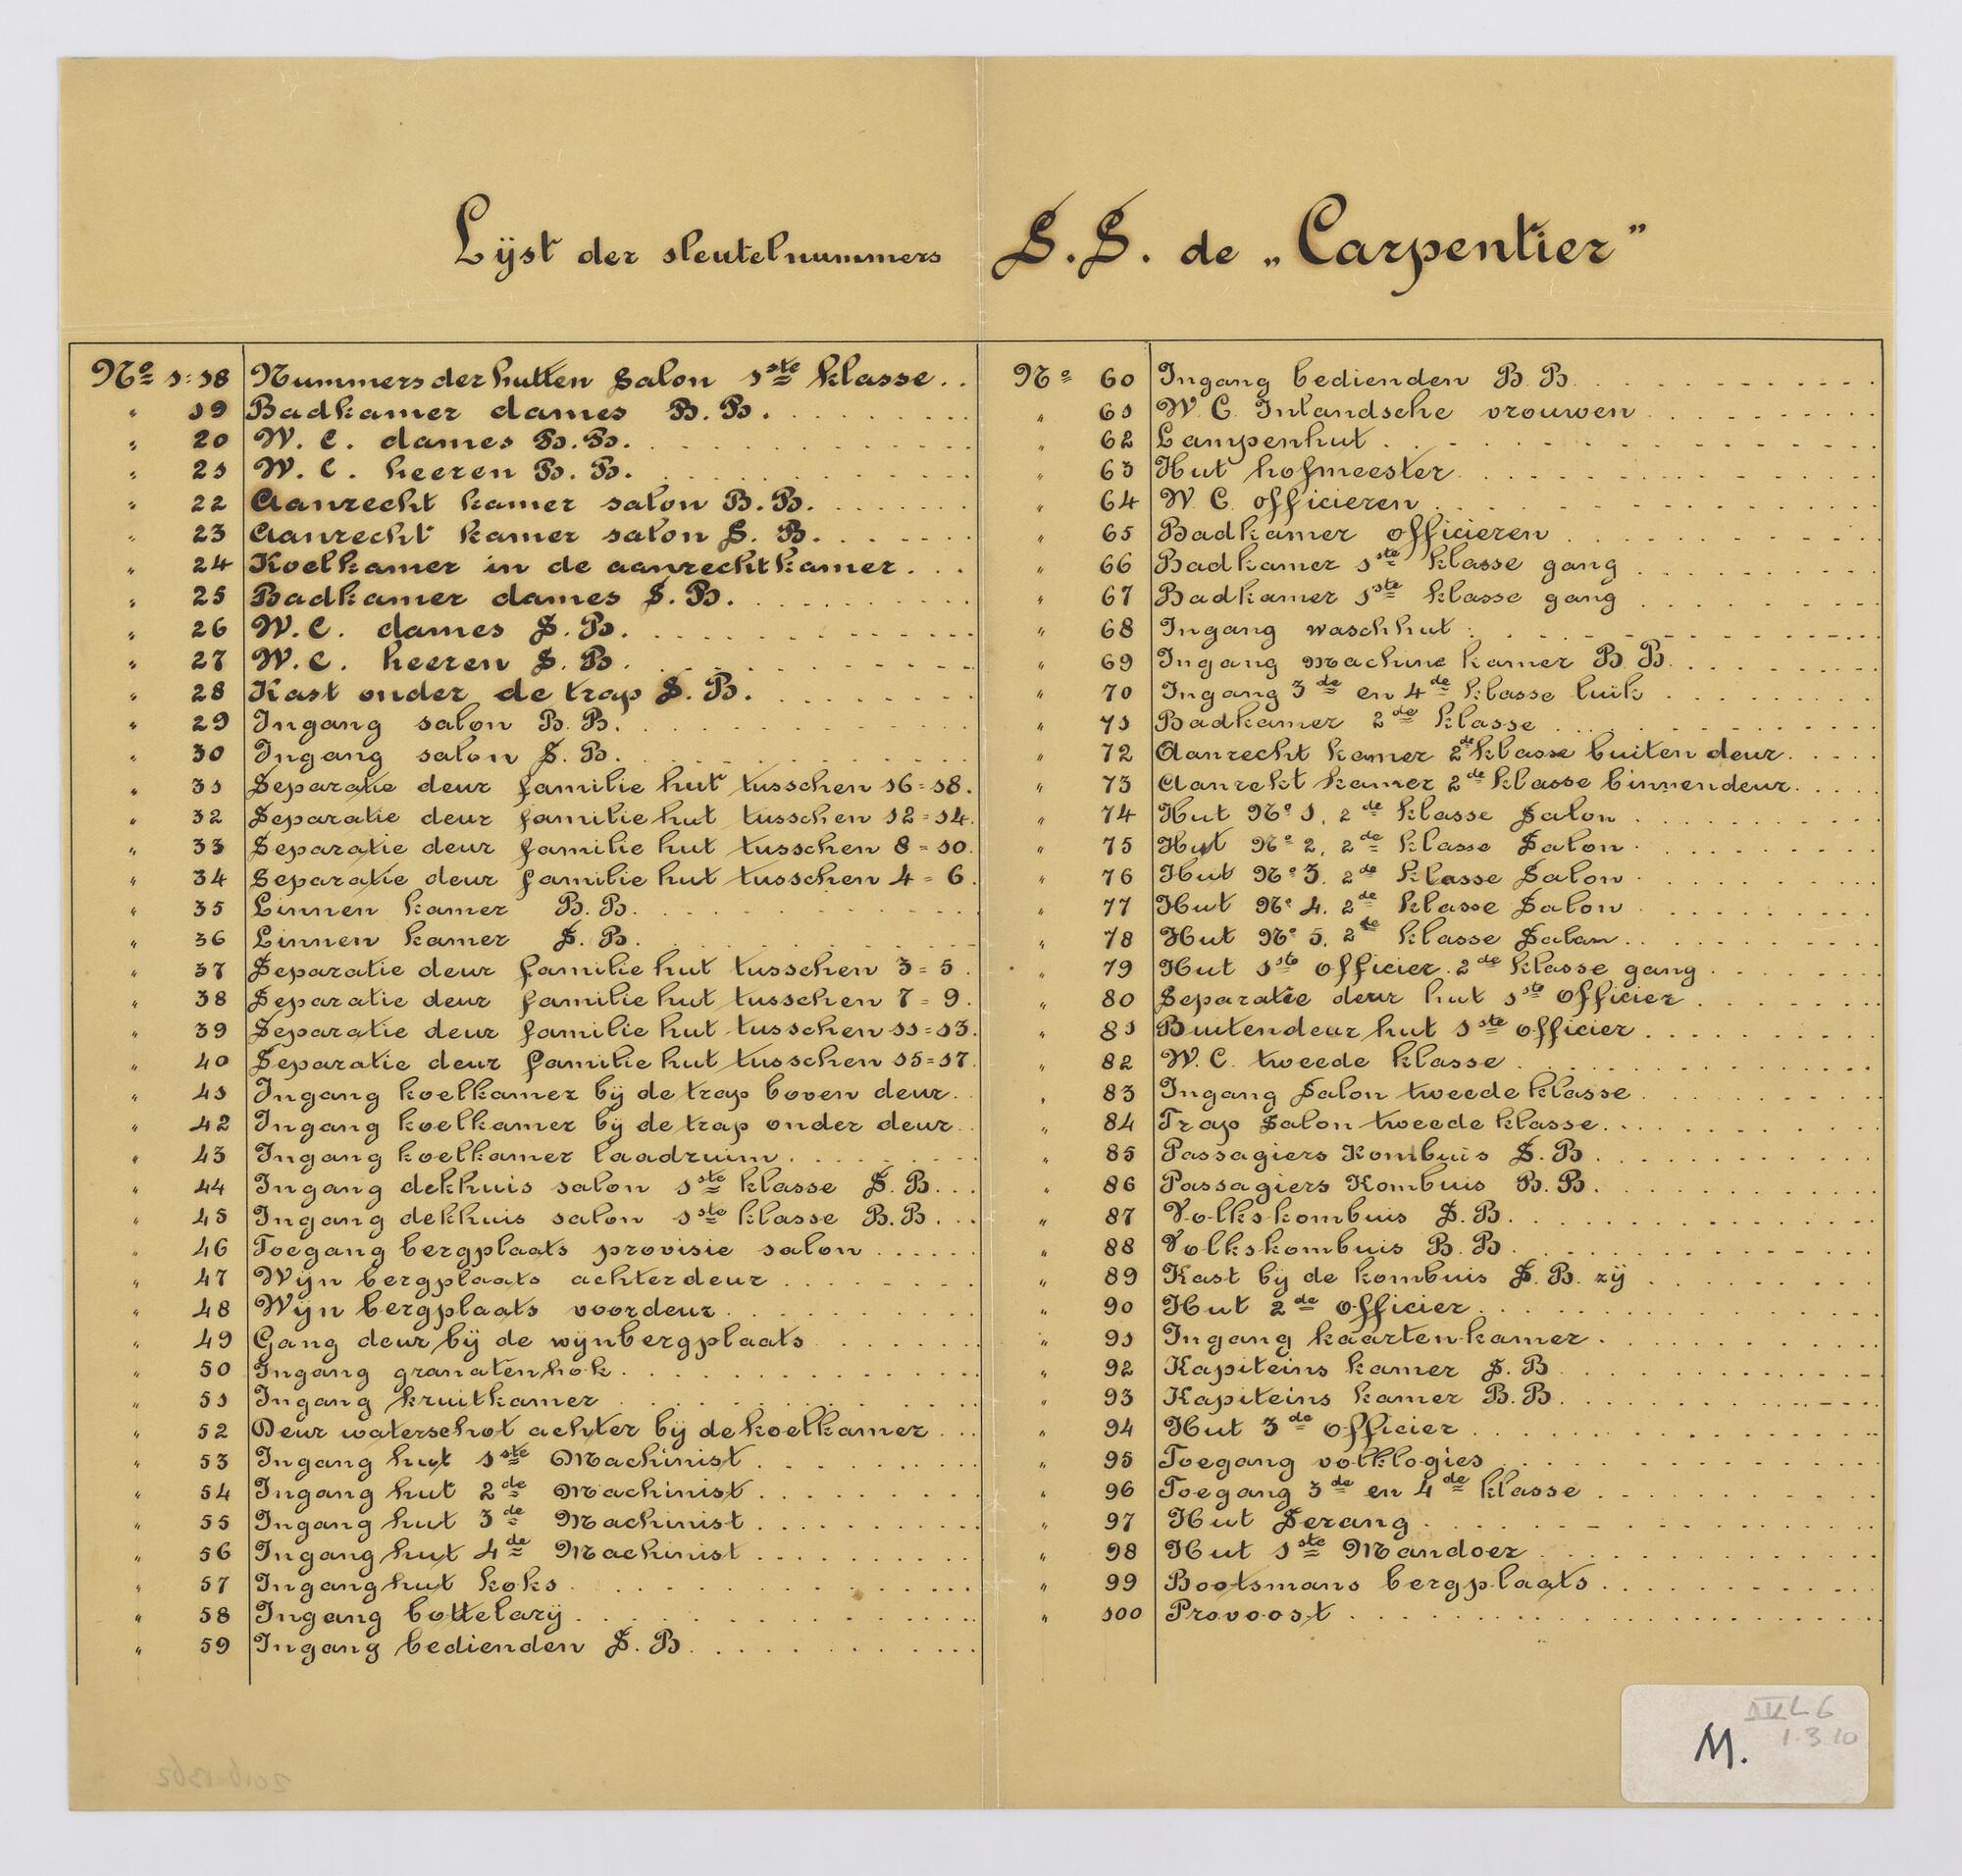 Lijst der sleutelnummers S.S. de „Carpentier"
No 1=18 Nummers der hutten Salon 1ste klasse
" 19 Badkamer dames B.B.
" 20 W.C. dames B.B.
" 21 W.C. heeren B.B.
" 22 Aanrecht kamer salon B.B.
" 23 Aanrecht kamer salon S.B.
" 24 Koelkamer in de aanrechtkamer
" 25 Badkamer dames S.B.
" 26 W.C. dames S.B.
" 27 W.C. heeren S.B.
" 28 Kast onder de trap S.B.
" 29 Ingang salon B.B.
" 30 Ingang salon S.B.
" 31 Separatie deur familie hut tusschen 16=18.
" 32 Separatie deur familie hut tusschen 12=14.
" 33 Separatie deur familie hut tusschen 8=10.
" 34 Separatie deur familie hut tusschen 4=6.
" 35 Linnen kamer B.B.
" 36 Linnen kamer S.B.
" 37 Separatie deur familie hut tusschen 3=5.
" 38 Separatie deur familie hut tusschen 7=9.
" 39 Separatie deur familie hut tusschen 11=13.
" 40 Separatie deur familie hut tusschen 15=17.
" 41 Ingang koelkamer bij de trap boven deur
" 42 Ingang koelkamer bij de trap onder deur
" 43 Ingang koelkamer laadruim
" 44 Ingang dekhuis salon 1ste klasse S.B.
" 45 Ingang dekhuis salon 1ste klasse B.B.
" 46 Toegang bergplaats provisie salon
" 47 Wijn bergplaats achterdeur
" 48 Wijn bergplaats voordeur
" 49 Gang deur bij de wijnbergplaats
" 50 Ingang granatenhok
" 51 Ingang kruitkamer
" 52 Deur waterschot achter bij de koelkamer
" 53 Ingang hut 1ste Machinist
" 54 Ingang hut 2de Machinist
" 55 Ingang hut 3de Machinist
" 56 Ingang hut 4de Machinist
" 57 Ingang hut koks
" 58 Ingang bottelarij
" 59 Ingang bedienden S.B.
No 60 Ingang bedienden B.B.
" 61 W.C. Inlandsche vrouwen
" 62 Lampenhut
" 63 Hut hofmeester
" 64 W.C. officieren
" 65 Badkamer officieren
" 66 Badkamer 1ste klasse gang
" 67 Badkamer 1ste klasse gang
" 68 Ingang waschhut
" 69 Ingang machine kamer B.B.
" 70 Ingang 3de en 4de klasse luik
" 71 Badkamer 2de klasse
" 72 Aanrecht kamer 2de klasse buiten deur
" 73 Aanrekt kamer 2de klasse binnendeur
" 74 Hut No 1. 2de klasse Salon
" 75 Hut No 2. 2de klasse Salon
" 76 Hut No 3. 2de klasse Salon
" 77 Hut No 4. 2de klasse Salon
" 78 Hut No 5. 2de klasse Salon
" 79 Hut 1ste officier 2de klasse gang
" 80 Separatie deur hut 1ste officier
" 81 Buitendeur hut 1ste officier
" 82 W.C. tweede klasse
" 83 Ingang Salon tweede klasse
" 84 Trap Salon tweede klasse
" 85 Passagiers Kombuis S.B.
" 86 Passagiers Kombuis B.B.
" 87 Volkskombuis S.B.
" 88 Volkskombuis B.B.
" 89 Kast bij de kombuis S.B. zij
" 90 Hut 2de officier
" 91 Ingang kaartenkamer
" 92 Kapiteins kamer S.B
" 93 Kapiteins kamer B.B.
" 94 Hut 3de officier
" 95 Toegang volklogies
" 96 Toegang 3de en 4de klasse
" 97 Hut Serang
" 98 Hut 1ste Mandoer
" 99 Bootsmans bergplaats
" 100 Provoost
L 6
1.3 10
M.